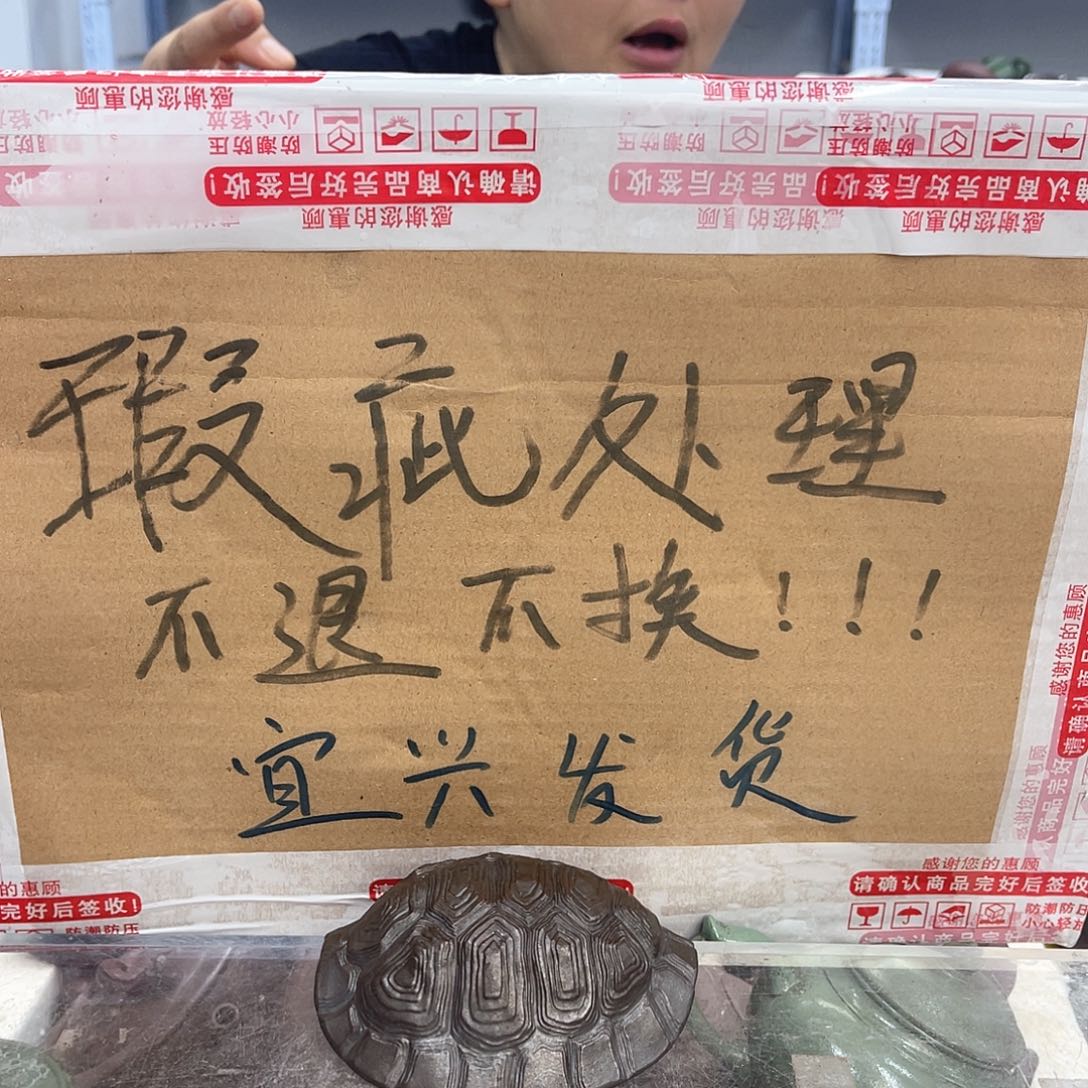 感谢您的惠顾 感谢您的惠顾
小心轻放 防潮防压 小心轻放 防潮防压 小心轻放 防潮防压
请确认商品完好后签收! 请确认商品完好后签收!
感谢您的惠顾 感谢您的惠顾 感谢您的惠顾
瑕疵处理
不退不换!!!
宜兴发货
感谢您的惠顾
感谢您的惠顾
的惠顾
完好后签收!
防潮防压
请
感谢您的惠顾
请确认商品完好后签收
防潮防
小心轻放
请确认商品完好后签收